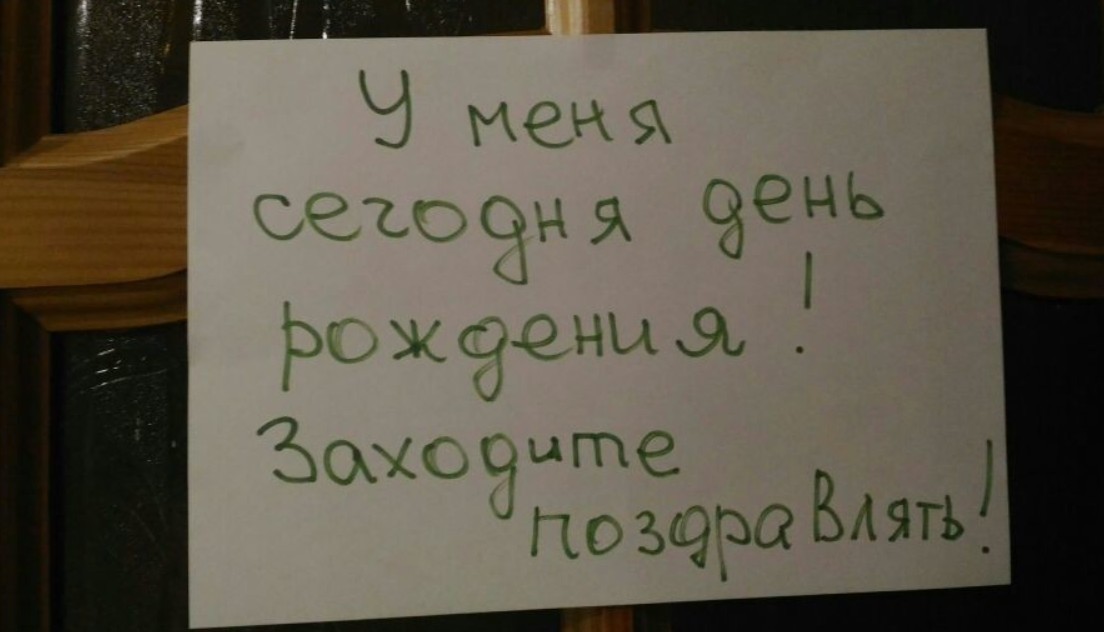 У меня
сегодня день
рождения!
Заходите
поздравлять!